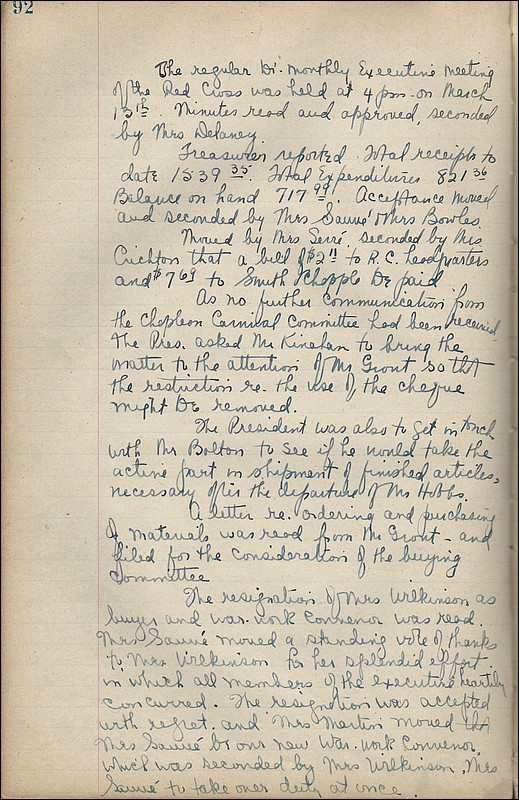 92
The regular Bi-monthly Executive meeting
of the Red Cross was held at 4 pm on March
13th. Minutes read and approved, seconded
by Mrs Delaney
Treasurer reported. Total receipts to
date 1539 35. Total Expenditures 821 36
Balance on hand 717 99. Acceptance moved
and seconded by Mrs Sauvé & Mrs Bowles.
Moved by Mrs Serré, seconded by Mrs
Crichton that a bill of $2 11 to R.C. headquarters
and $7 69 to Smith & Chapple be paid
As no further communication from
the Chapleau Carnival Committee had been received,
the Pres. asked Mr Kinahan to bring the
matter to the attention of Mr Grout so that
the restriction re. the use of the cheque
might be removed.
The President was also to get in touch
with Mr Bolton to see if he would take the
active part in shipment of finished articles,
necessary after the departure of Mr Hobbs.
A letter re. ordering and purchasing
of materials was read from Mr Grout - and
filed for the consideration of the buying
committee
The resignation of Mrs Wilkinson as
buyer and war-work convenor was read.
Mrs Sauvé moved a standing vote of thanks
to Mrs Wilkinson for her splendid effort
in which all members of the executive heartily
concurred. The resignation was accepted
with regret. and Mrs Martin moved that
Mrs Sauvé be our new War-work Convenor,
which was seconded by Mrs Wilkinson. Mrs
Sauvé to take over duty at once.